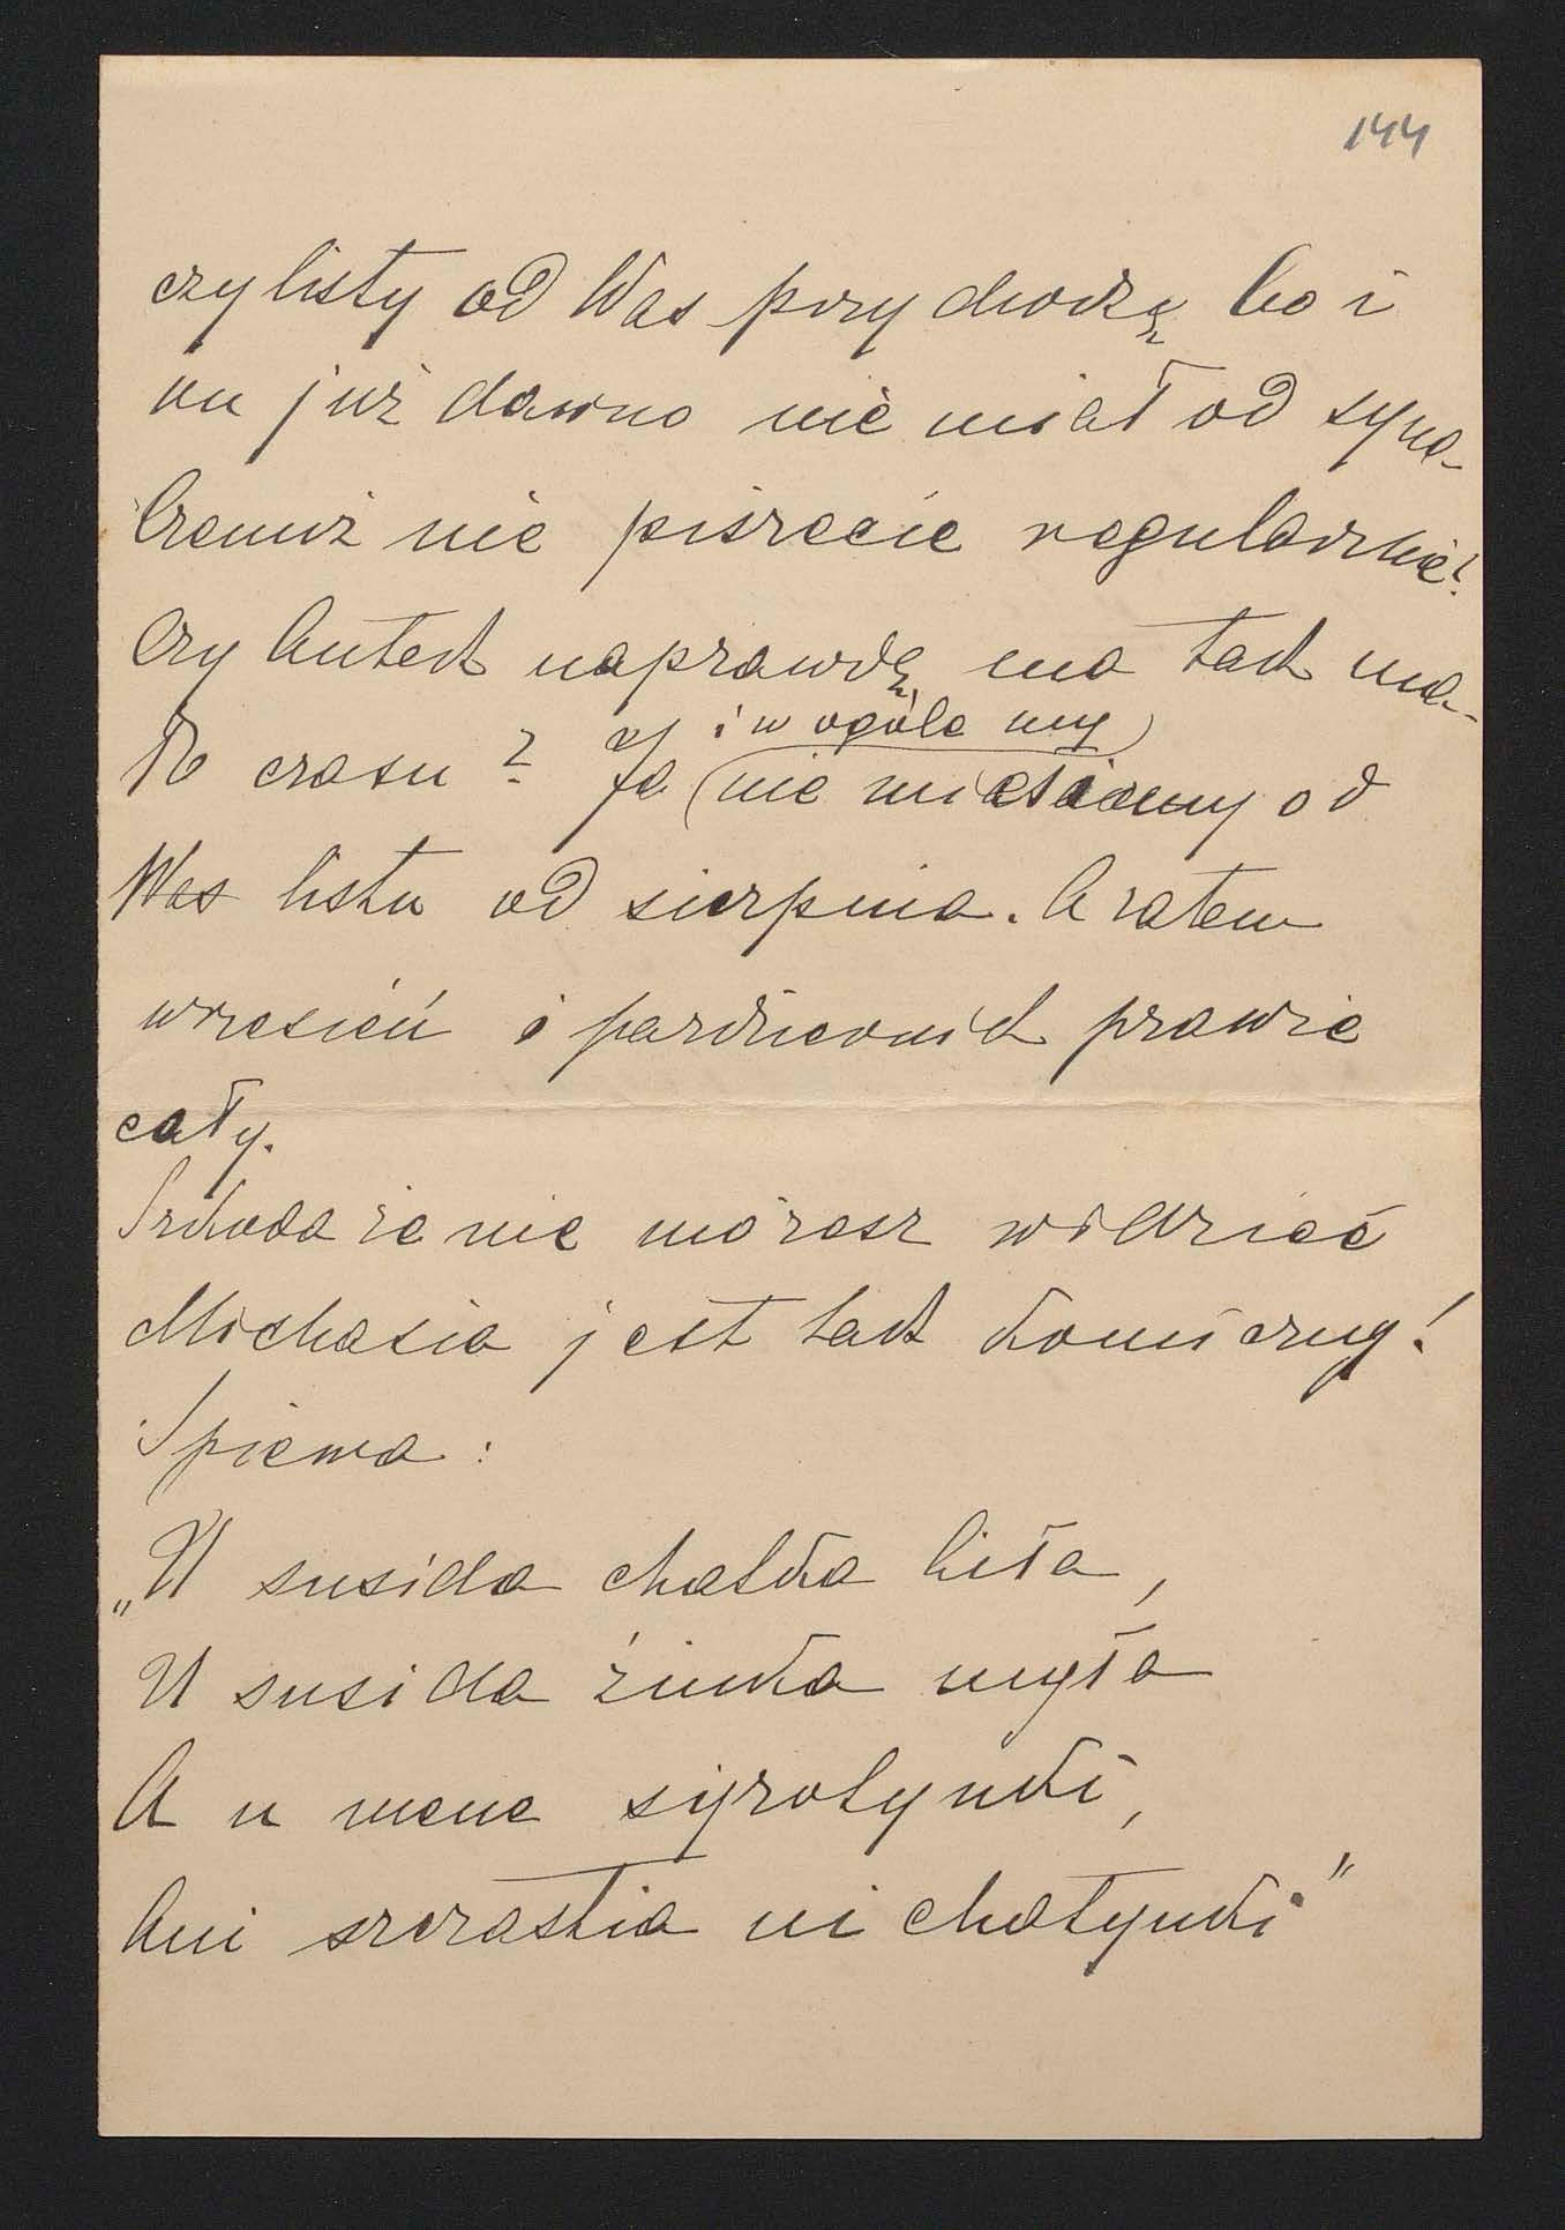 144
czy listy od Was przychodzą bo i
on już dawno nie miał od syna
Czemuż nie piszecie regularnie!
Czy Antek naprawdę ma tak ma-
ło czasu? Ja i w ogóle my
nie mieliśmy od
Was listu od sierpnia. A zatem
wrzesień i pazdziernik prawie
cały.
Szkoda że nie możesz widzieć
Michasia jest tak komiczny!
Śpiewa:
„U susida chatka biła,
U susida żinka myła
A u mene syrotynki,
Ani szczastia ni chatynki"